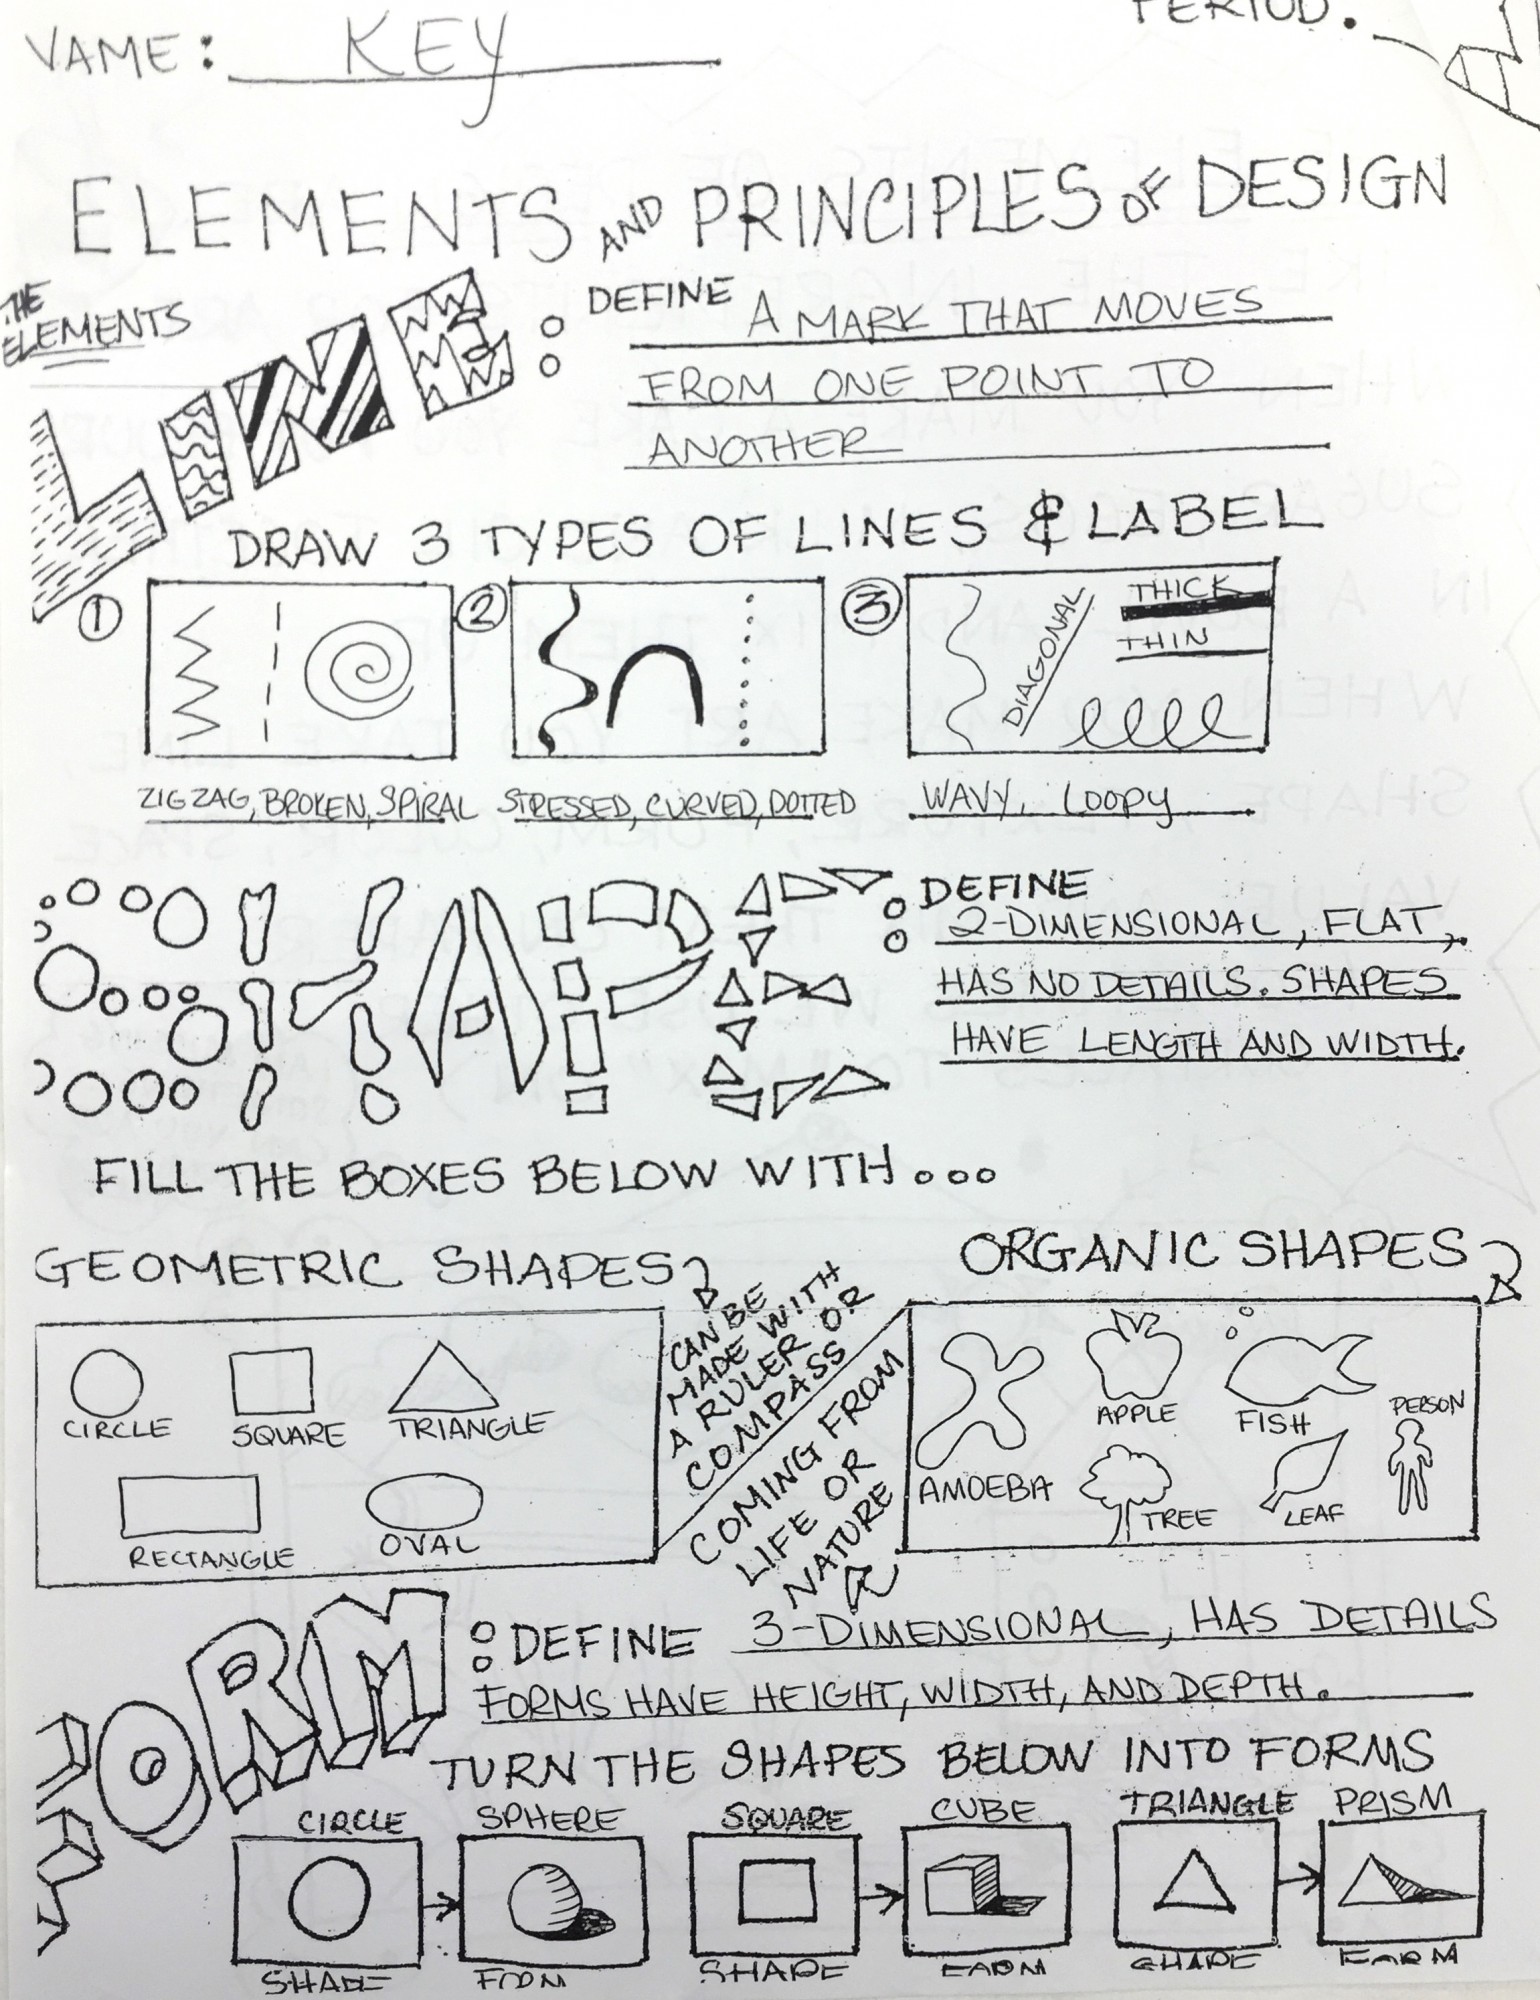 NAME: KEY
PERIOD:
ELEMENTS AND PRINCIPLES OF DESIGN
THE ELEMENTS
LINE: DEFINE A MARK THAT MOVES
FROM ONE POINT TO
ANOTHER
DRAW 3 TYPES OF LINES & LABEL
1 2 3
DIAGONAL
THICK
THIN
ZIGZAG, BROKEN, SPIRAL
STRESSED, CURVED, DOTTED
WAVY, LOOPY
SHAPE: DEFINE
2-DIMENSIONAL, FLAT,
HAS NO DETAILS. SHAPES
HAVE LENGTH AND WIDTH.
FILL THE BOXES BELOW WITH...
GEOMETRIC SHAPES
CAN BE
MADE WITH
A RULER OR
COMPASS
CIRCLE SQUARE TRIANGLE
RECTANGLE OVAL
ORGANIC SHAPES
COMING FROM
LIFE OR
NATURE
AMOEBA
APPLE
FISH
PERSON
TREE
LEAF
FORM: DEFINE 3-DIMENSIONAL, HAS DETAILS
FORMS HAVE HEIGHT, WIDTH, AND DEPTH.
TURN THE SHAPES BELOW INTO FORMS
CIRCLE SPHERE SQUARE CUBE TRIANGLE PRISM
SHAPE FORM SHAPE FORM SHAPE FORM